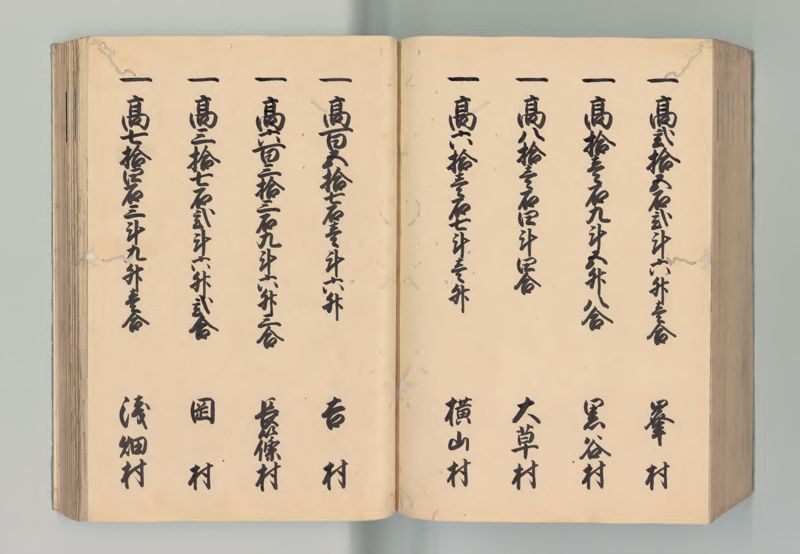 一 高弐拾五石弐斗六升壱合 峯村
一 高拾壱石九斗五升八合 黒谷村
一 高八拾壱石四斗四合 大草村
一 高六拾壱石七斗壱升 横山村
一 高百五拾七石壱斗六升 吉村
一 高六百三拾三石九斗六升三合 長篠村
一 高三拾七石弐斗六升弐合 岡村
一 高七拾四石三斗九升壱合 浅畑村